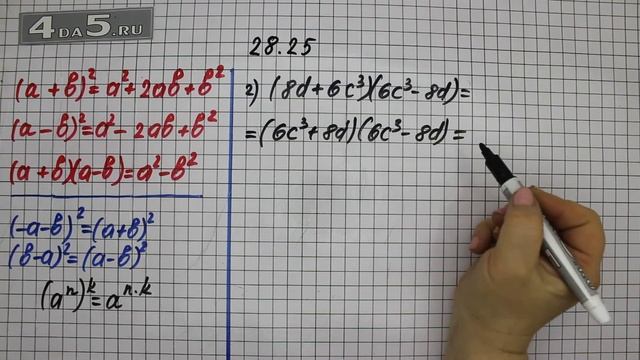 4DA5.RU
28.25
(a+b)²=a²+2ab+b²
(a-b)²=a²-2ab+b²
(a+b)(a-b)=a²-b²
(-a-b)²=(a+b)²
(b-a)²=(a-b)²
(aⁿ)ᵏ=aⁿ·ᵏ
2) (8d+6c³)(6c³-8d)=
=(6c³+8d)(6c³-8d)=